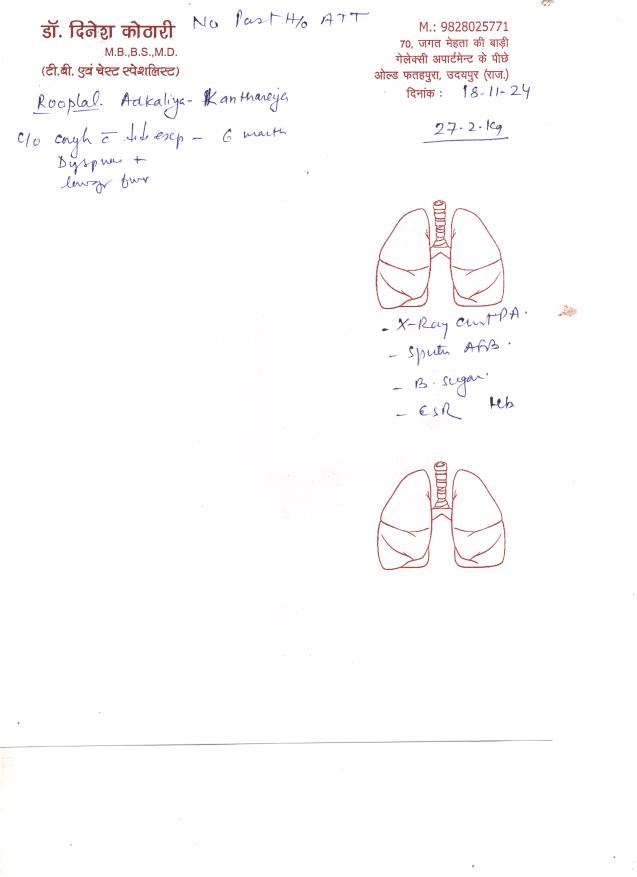 No Past H/o ATT
डॉ. दिनेश कोठारी
M.B.,B.S.,M.D.
(टी.बी. एवं चेस्ट स्पेशलिस्ट)
M.: 9828025771
70, जगत मेहता की बाड़ी
गेलेक्सी अपार्टमेन्ट के पीछे
ओल्ड फतहपुरा, उदयपुर (राज.)
दिनांक : 18-11-24
Rooplal. Adkaliya- Kanthareja
27.2.Kg
c/o cough c̄ ↓↓ exp - 6 month
Dyspnea +
- X-Ray Chest PA.
- Sputum AFB.
- B. Sugar.
- ESR Hb